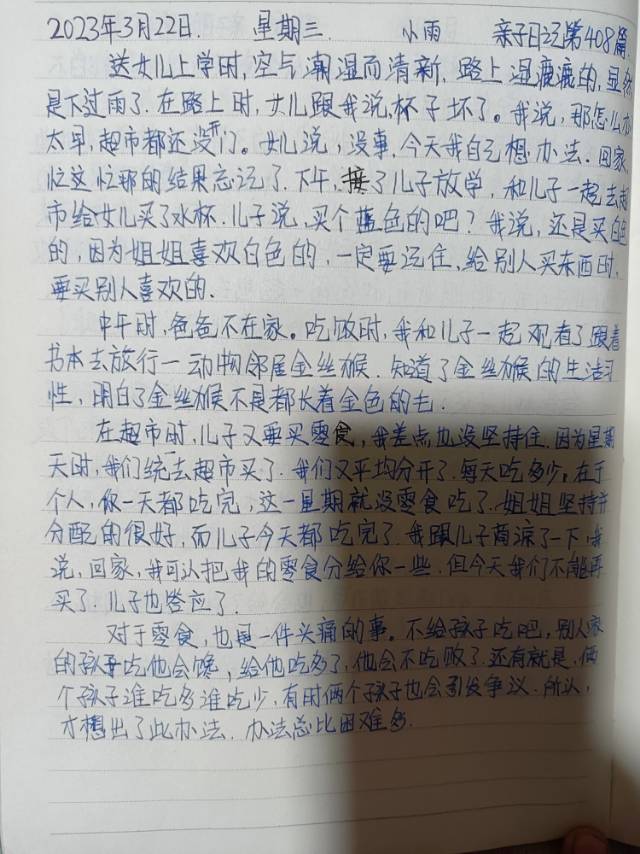 2023年3月22日. 星期三. 小雨 亲子日记第408篇.
送女儿上学时,空气潮湿而清新.路上湿漉漉的,显然
是下过雨了.在路上时,女儿跟我说,杯子坏了。我说,那怎么办
太早,超市都还没开门。女儿说,没事.今天我自己想办法.回家
忙这忙那的结果忘记了.下午,接了儿子放学,和儿子一起去超
市给女儿买了水杯.儿子说,买个蓝色的吧?我说,还是买白色
的,因为姐姐喜欢白色的,一定要记住,给别人买东西时,
要买别人喜欢的.
中午时,爸爸不在家。吃饭时,我和儿子一起观看了跟着
书本去旅行一动物邻居金丝猴.知道了金丝猴的生活习
性,明白了金丝猴不是都长着金色的毛.
在超市时,儿子又要买零食,我差点也没坚持住.因为星期
天时,我们统一去超市买了.我们又平均分开了.每天吃多少,在于
个人,你一天都吃完,这一星期就没零食吃了.姐姐坚持并
分配的很好,而儿子今天都吃完了.我跟儿子商凉了一下,我
说,回家,我可以把我的零食分给你一些.但今天我们不能再
买了.儿子也答应了.
对于零食,也是一件头痛的事。不给孩子吃吧,别人家
的孩子吃他会馋,给他吃多了,他会不吃败了.还有就是,俩
个孩子谁吃多谁吃少,有时俩个孩子也会引发争议.所以,
才想出了此办法.办法总比困难多.